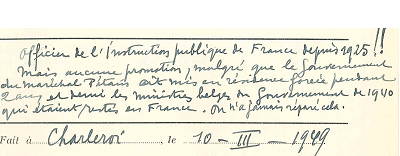 Officier de l'Instruction publique de France depuis 1925 !!
Mais aucune promotion, malgré que le Gouvernement
du maréchal Pétain ait mis en résidence forcée pendant
2 ans et demi les ministres belges du Gouvernement de 1940
qui étaient restés en France. On n'a jamais réparé cela.
Fait à Charleroi, le 10 - III - 1949